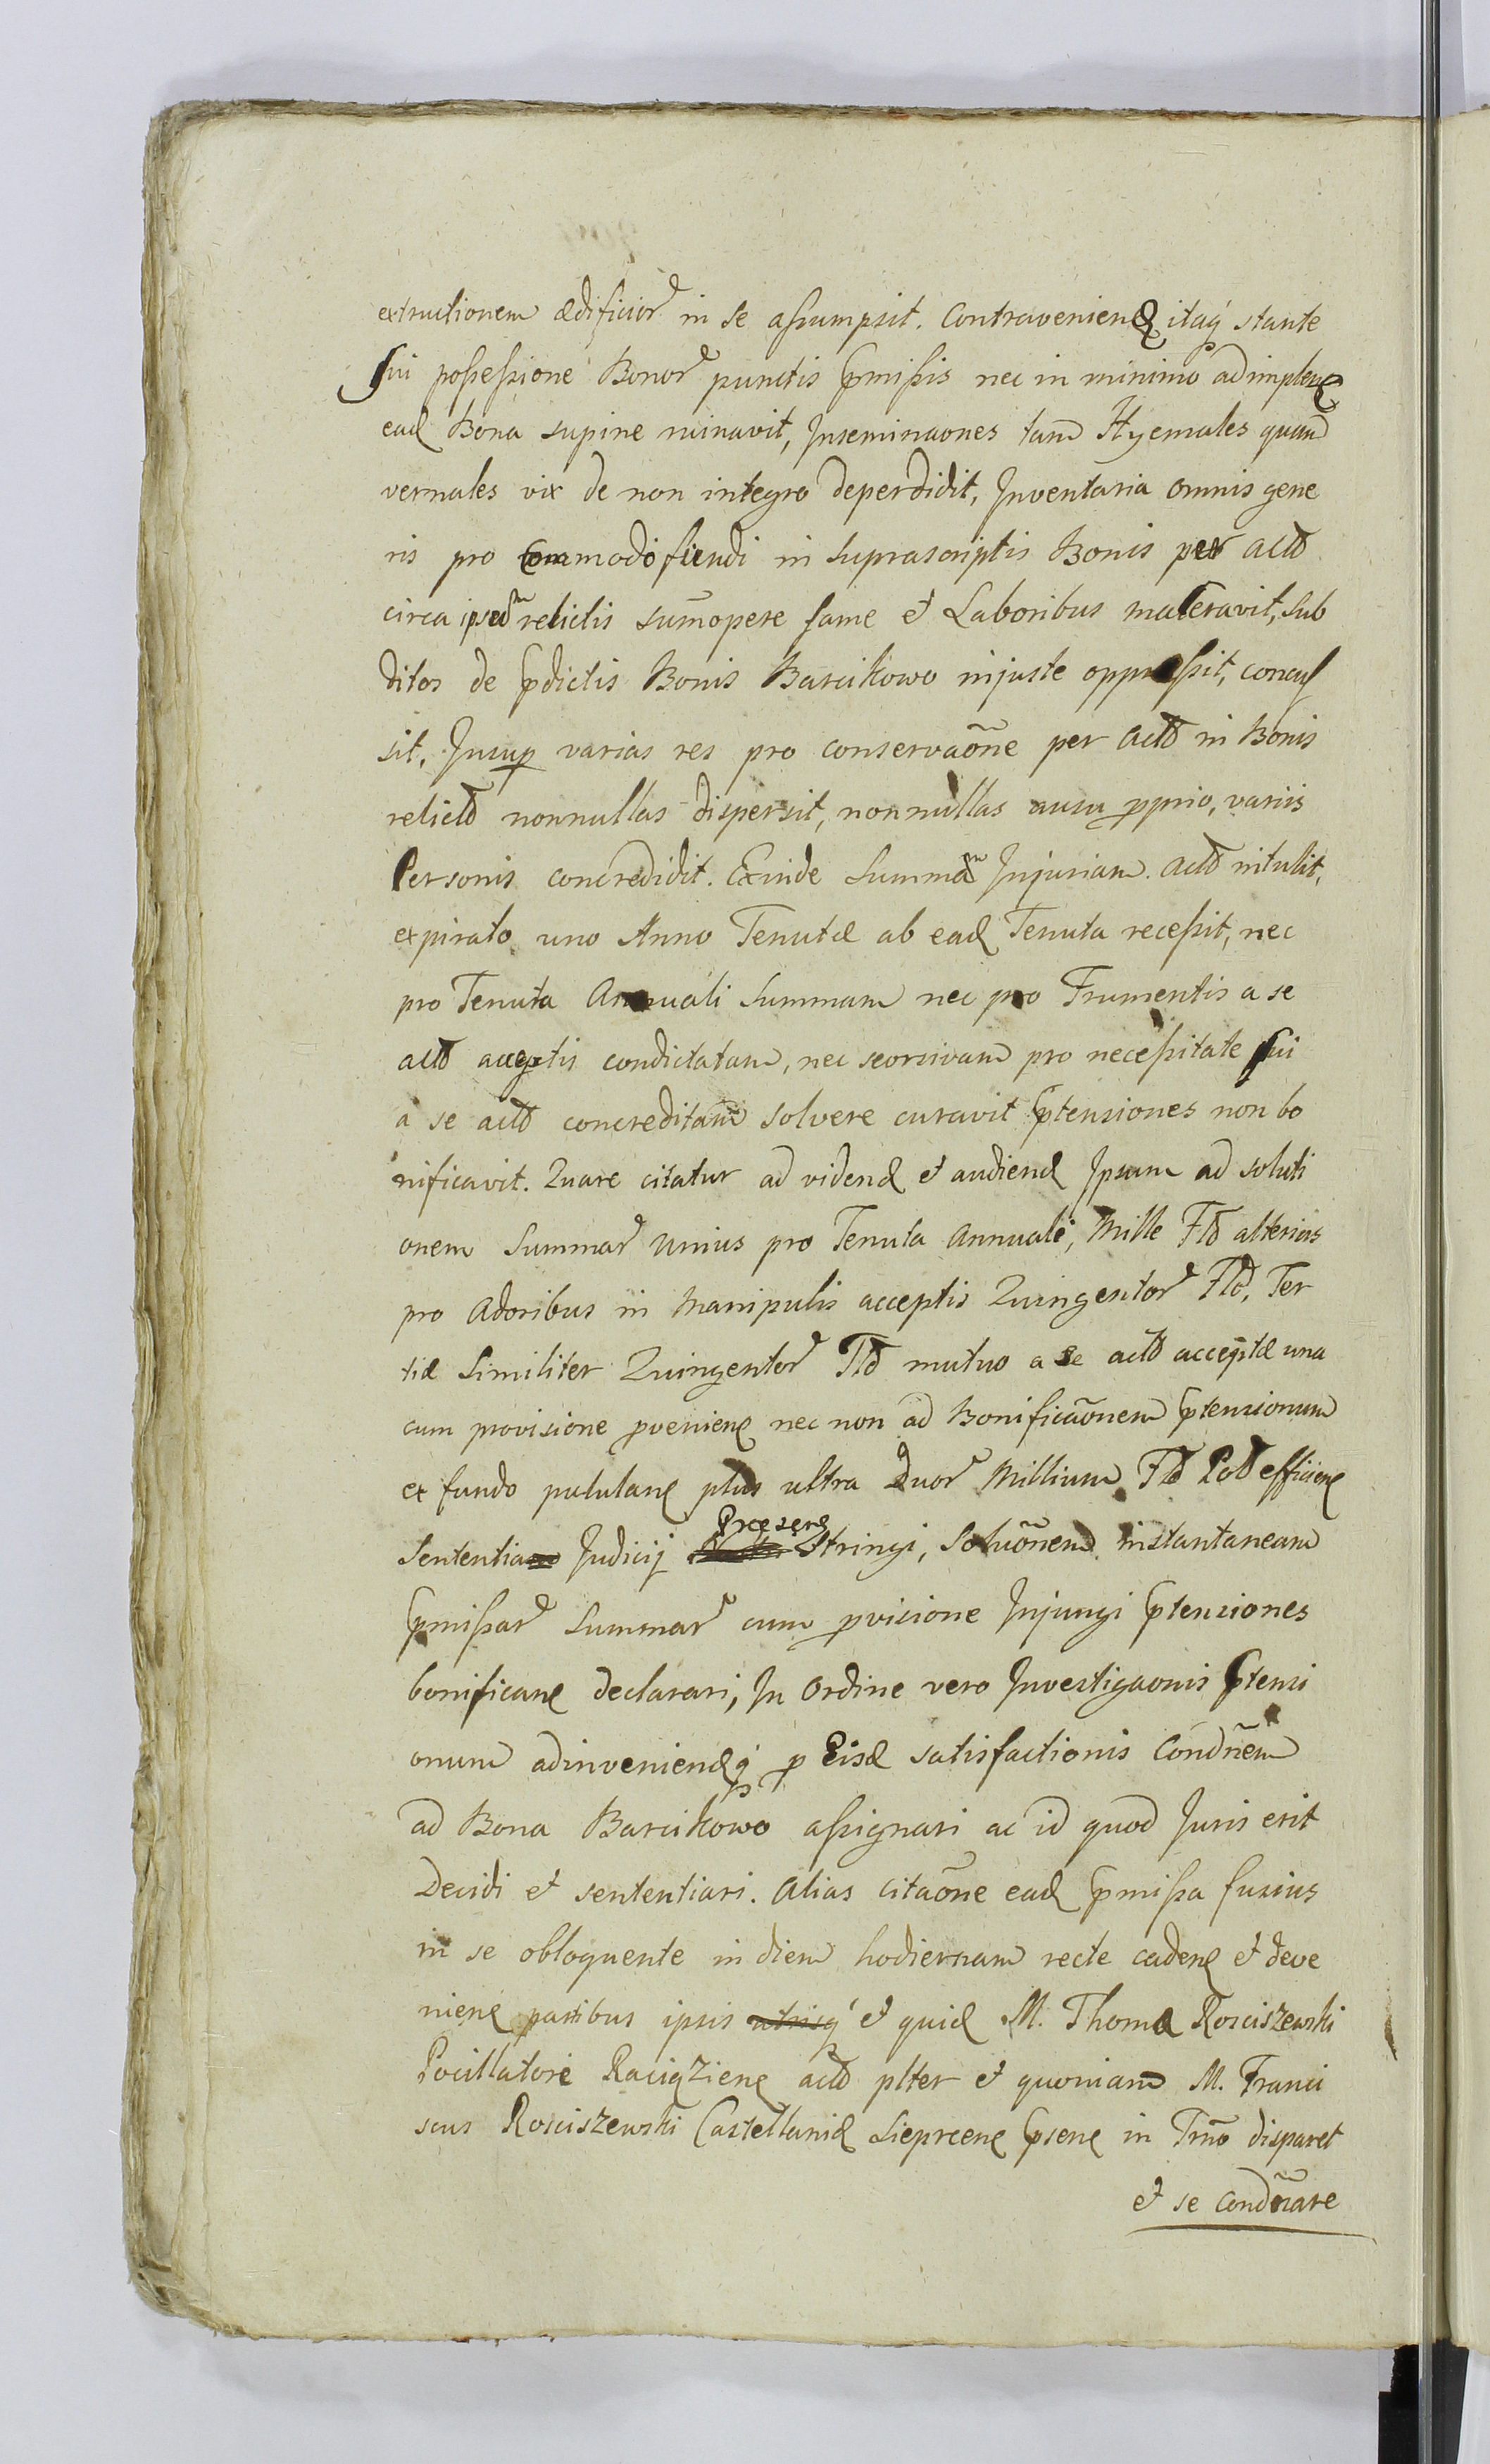 extructionem ædificior in se assumpsit. Contravenien itaq stante
sui possessione Bonor punctis pmissis nec in minimo adimplen
ead Bona supine ruinavit, Inseminaones tam Hyemales quam
vernales vix de non integro deperdidit, Inventaria omnis gene
ris pro commodo fiendi in suprascriptis Bonis per actd
circa ipsum relictis summopere fame et Laboribus maceravit, sub
ditos de pdictis Bonis Barcikowo injuste oppressit, concus
sit, Insup varias res pro conservaone per actd in Bonis
relictd nonnullas dispersit, nonnullas ausu pprio, variis
Personis concredidit. Exinde Summam Injuriam actd intulit,
expirato uno Anno Tenutæ ab ead Tenuta recessit, nec
pro Tenuta Annuali Summam nec pro Frumentis a se
actd acceptis condictatam, nec seorsivam pro necessitate sui
a se actd concreditam solvere curavit ptensiones non bo
nificavit. Quare citatur ad vidend et audiend Ipsum ad soluti
onem Summar unius pro Tenuta Annuali, Mille Fld alterius
pro Adoribus in Manipulis acceptis Quingentor Fld, Ter
tiæ Similiter Quingentor Fld mutuo a se actd acceptæ una
cum provisione pvenien nec non ad Bonificaonem ptensionum
ex fundo pululan plus ultra Duor Millium Fld Pold efficien
Sententia Judicij Præsen Stringi, Soluonem instantaneam
pmissar Summar cum pvisione Injungi ptensiones
bonifican declarari, In Ordine vero Investigaonis ptensi
onum adinveniendq p Eisd satisfactionis Condnem
ad Bona Barcikowo assignari ac id quod Juris erit
Decidi et sententiari. Alias Citaone ead pmissa fusius
in se obloquente in diem hodiernam recte caden et deve
nien partibus ipsis utrisq et quid M. Thoma Rosciszewski
Pocillatore Raciązien actd plter et quoniam M. Franci
scus Rosciszewski Castellanid Sieprcen psen in Trno disparet
et se condnare